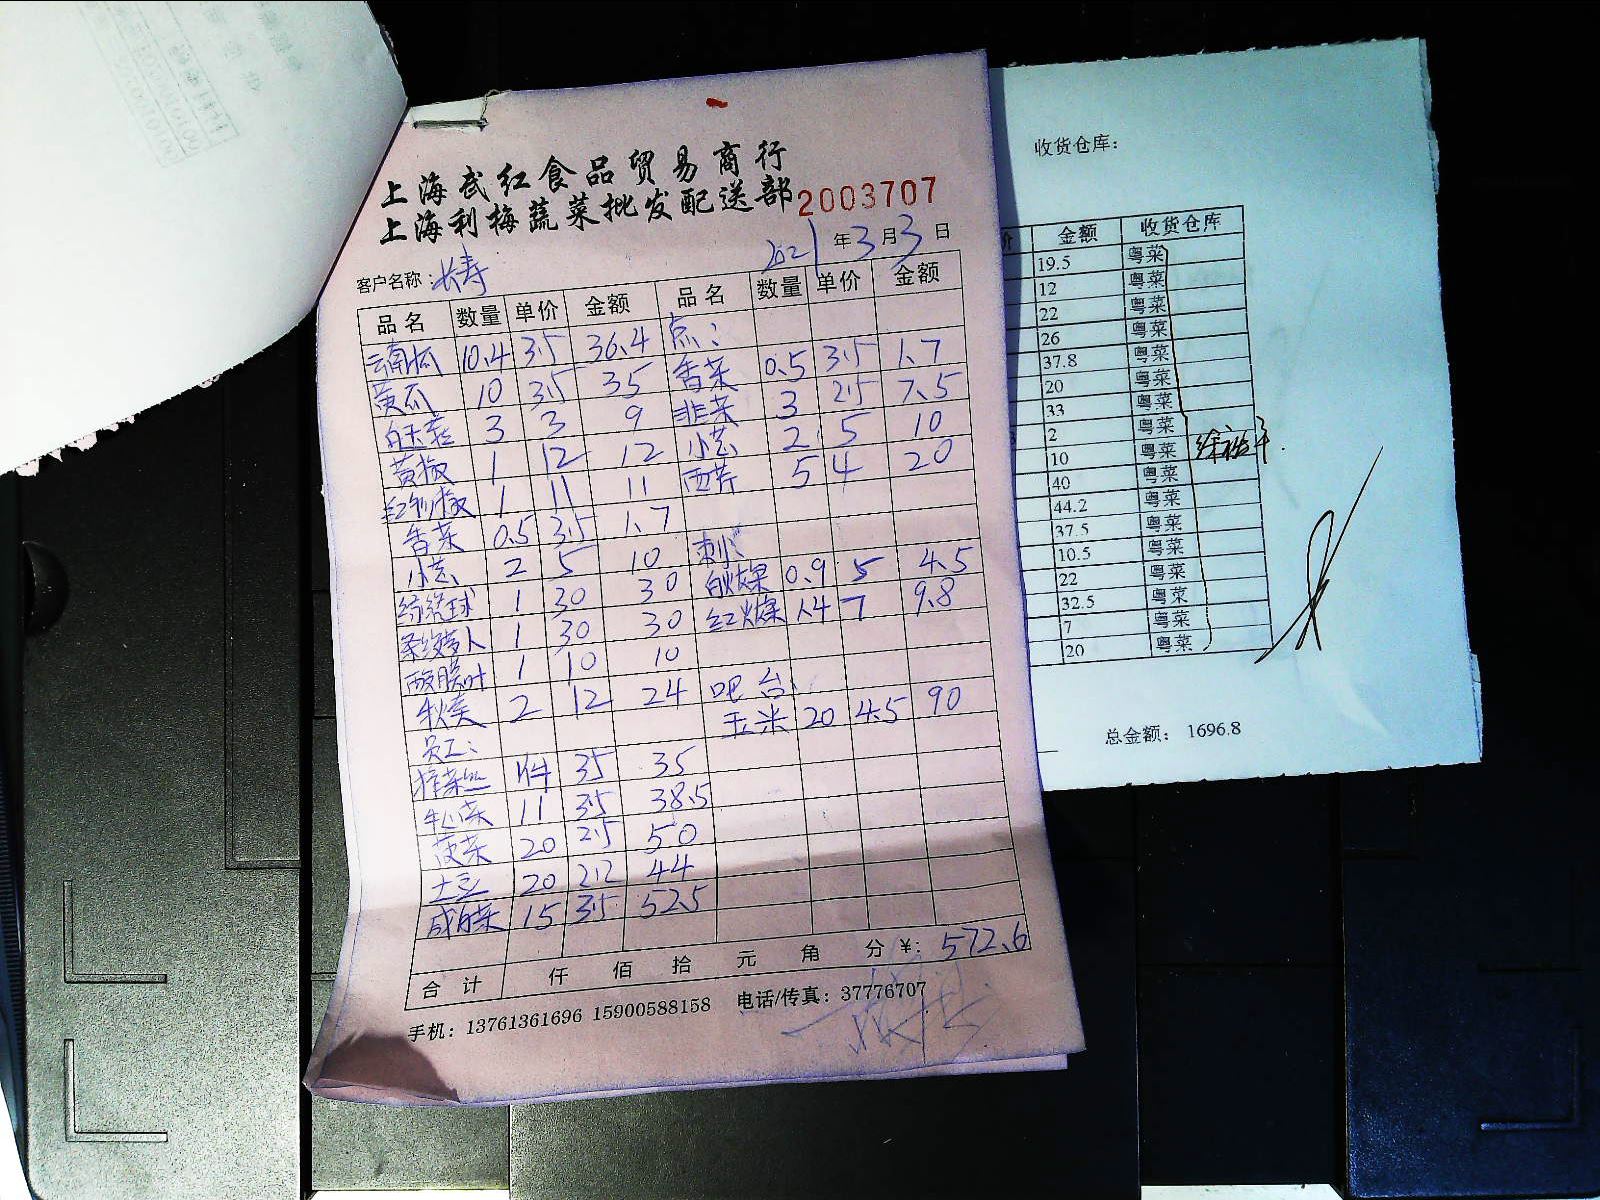 上海武红食品贸易商行
上海利梅蔬菜批发配送部 2003707
客户名称：长寿 2021年3月3日
品名 数量 单价 金额 品名 数量 单价 金额
云南瓜 10.4 3.5 36.4 点：
黄瓜 10 3.5 35 香菜 0.5 3.5 1.7
白玉菇 3 3 9 韭菜 3 2.5 7.5
黄椒 1 12 12 小芸 2 5 10
红别椒 1 11 11 西芹 5 4 20
香菜 0.5 3.5 1.7
小芸 2 5 10 刺：
1 30 30 0.9 5 4.5
1 30 30 1.4 7 9.8
1 10 10
秋葵 2 12 24 吧台：
员工： 玉米 20 4.5 90
榨菜丝 1件 35 35
牛心菜 11 3.5 38.5
菠菜 20 2.5 50
土豆 20 2.2 44
咸白菜 15 3.5 52.5
合计 仟 佰 拾 元 角 分 ¥：572.6
手机：13761361696 15900588158 电话/传真：37776707
收货仓库：
价 金额 收货仓库
19.5 粤菜
12 粤菜
22 粤菜
26 粤菜
37.8 粤菜
20 粤菜
33 粤菜
2 粤菜
10 粤菜
40 粤菜
44.2 粤菜
37.5 粤菜
10.5 粤菜
22 粤菜
32.5 粤菜
7 粤菜
20 粤菜
总金额： 1696.8